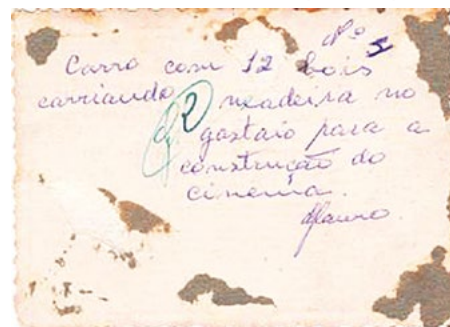 Nº 5
Carro com 12 bois
carriando madeira no
92
gastaio para a
construção do
cinema.
Mauro.